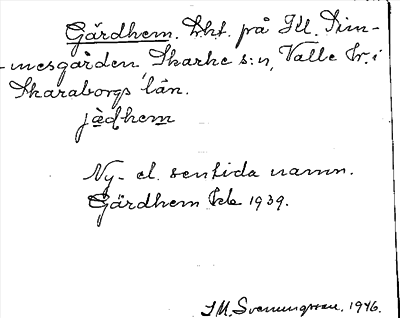 Gärdhem. Lht. på Kl. Sim-
mesgården Skarke s:n, Valle hr. i
Skaraborgs län.
jädhem
Ny- el. sentida namn.
Gärdhem Ek 1939.
I.M. Svenungsson. 1946.